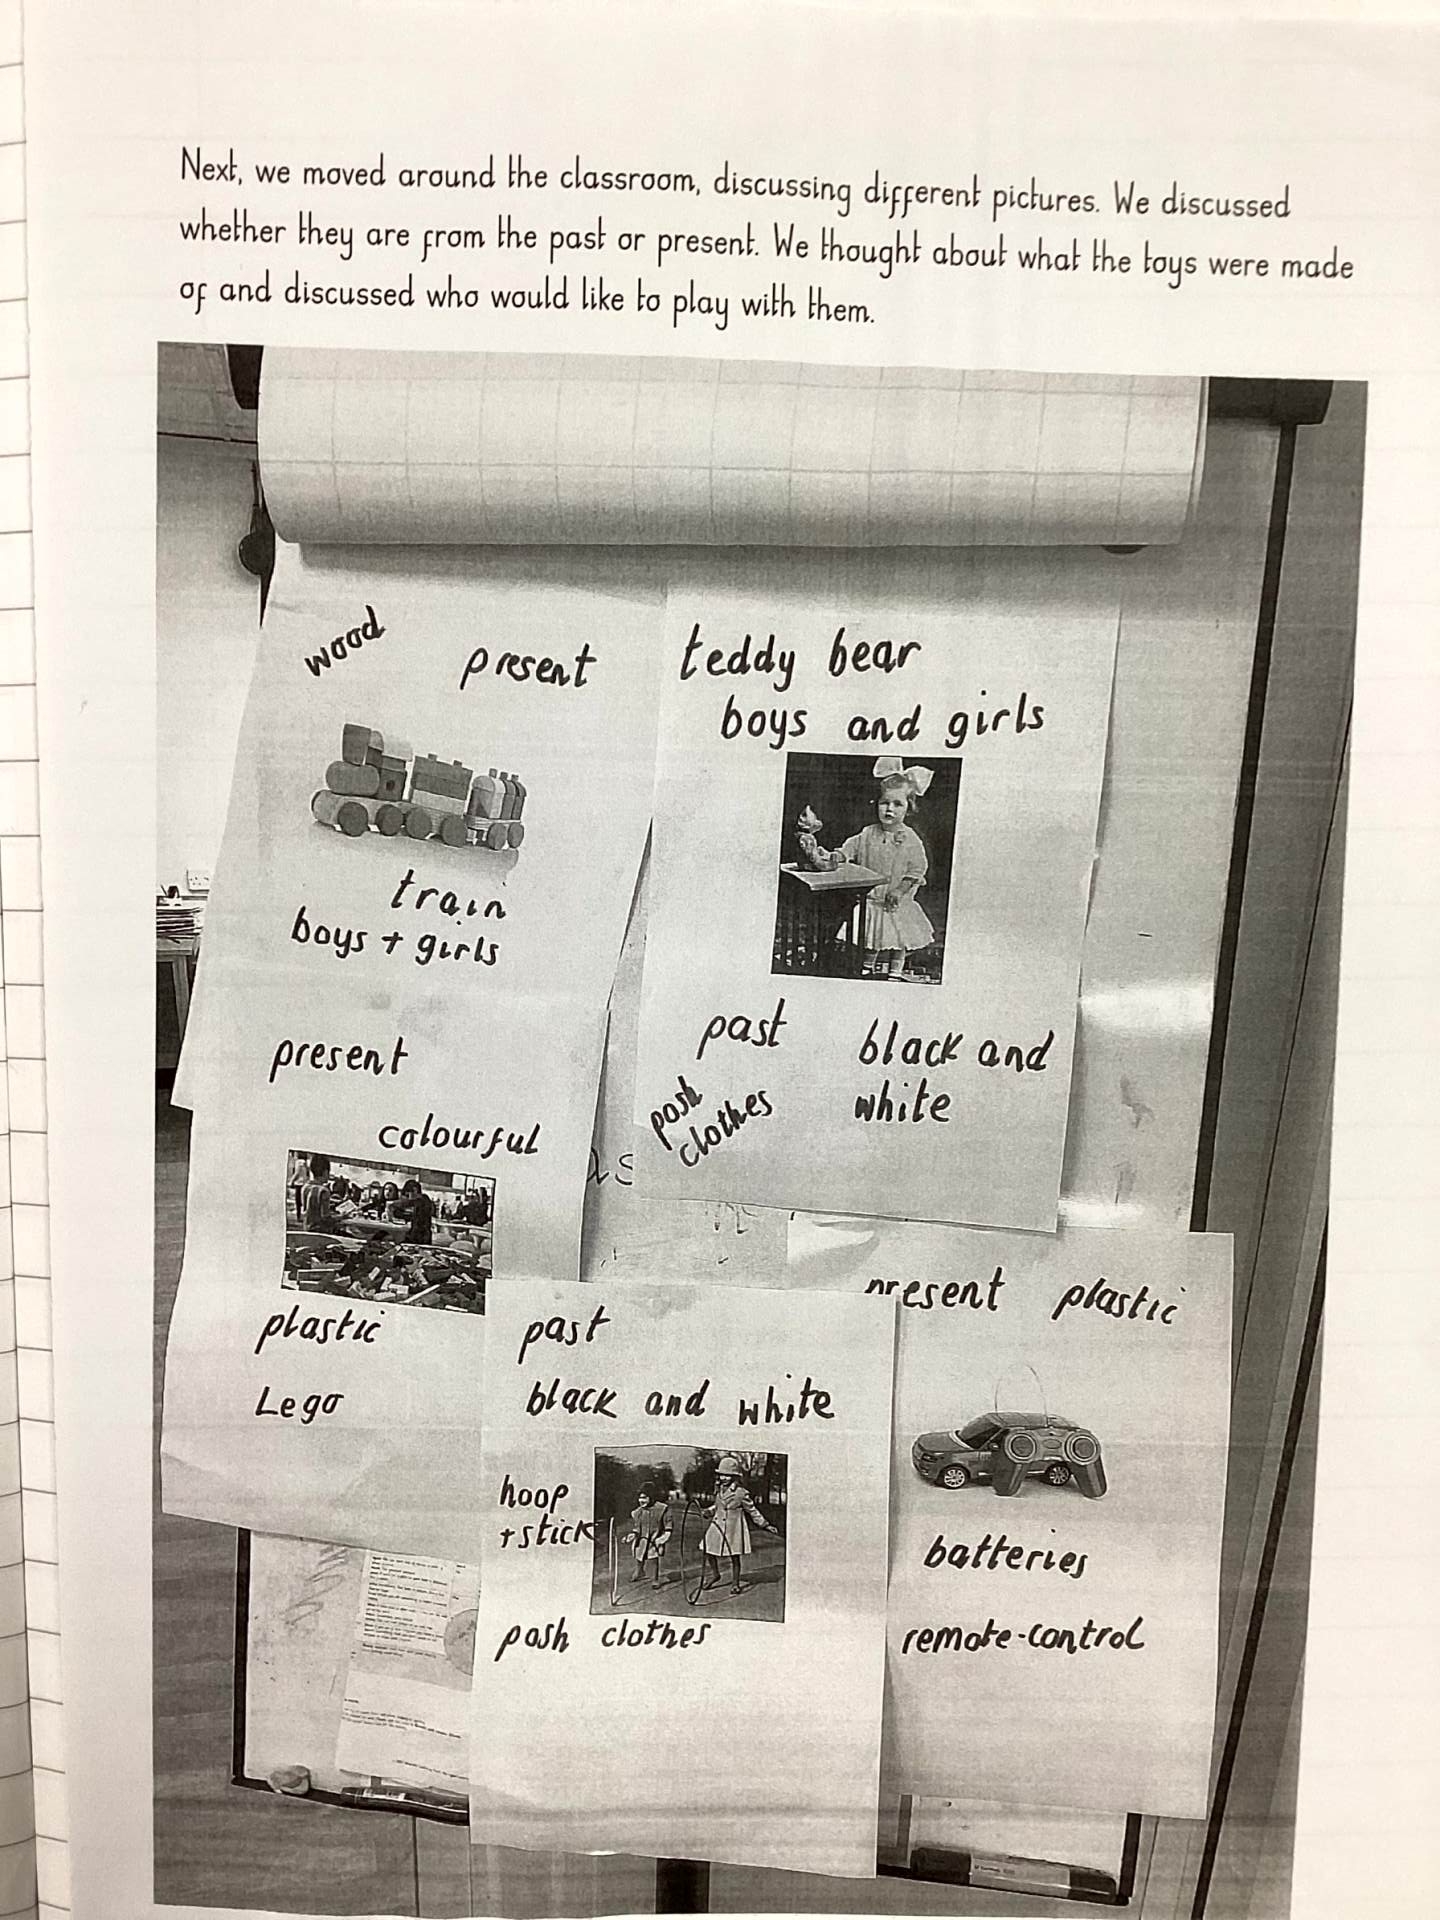 Next, we moved around the classroom, discussing different pictures. We discussed
whether they are from the past or present. We thought about what the toys were made
of and discussed who would like to play with them.
wood
present
train
boys + girls
teddy bear
boys and girls
past
black and
white
posh
clothes
present
colourful
plastic
Lego
past
black and white
hoop
+ stick
posh clothes
present plastic
batteries
remote-control